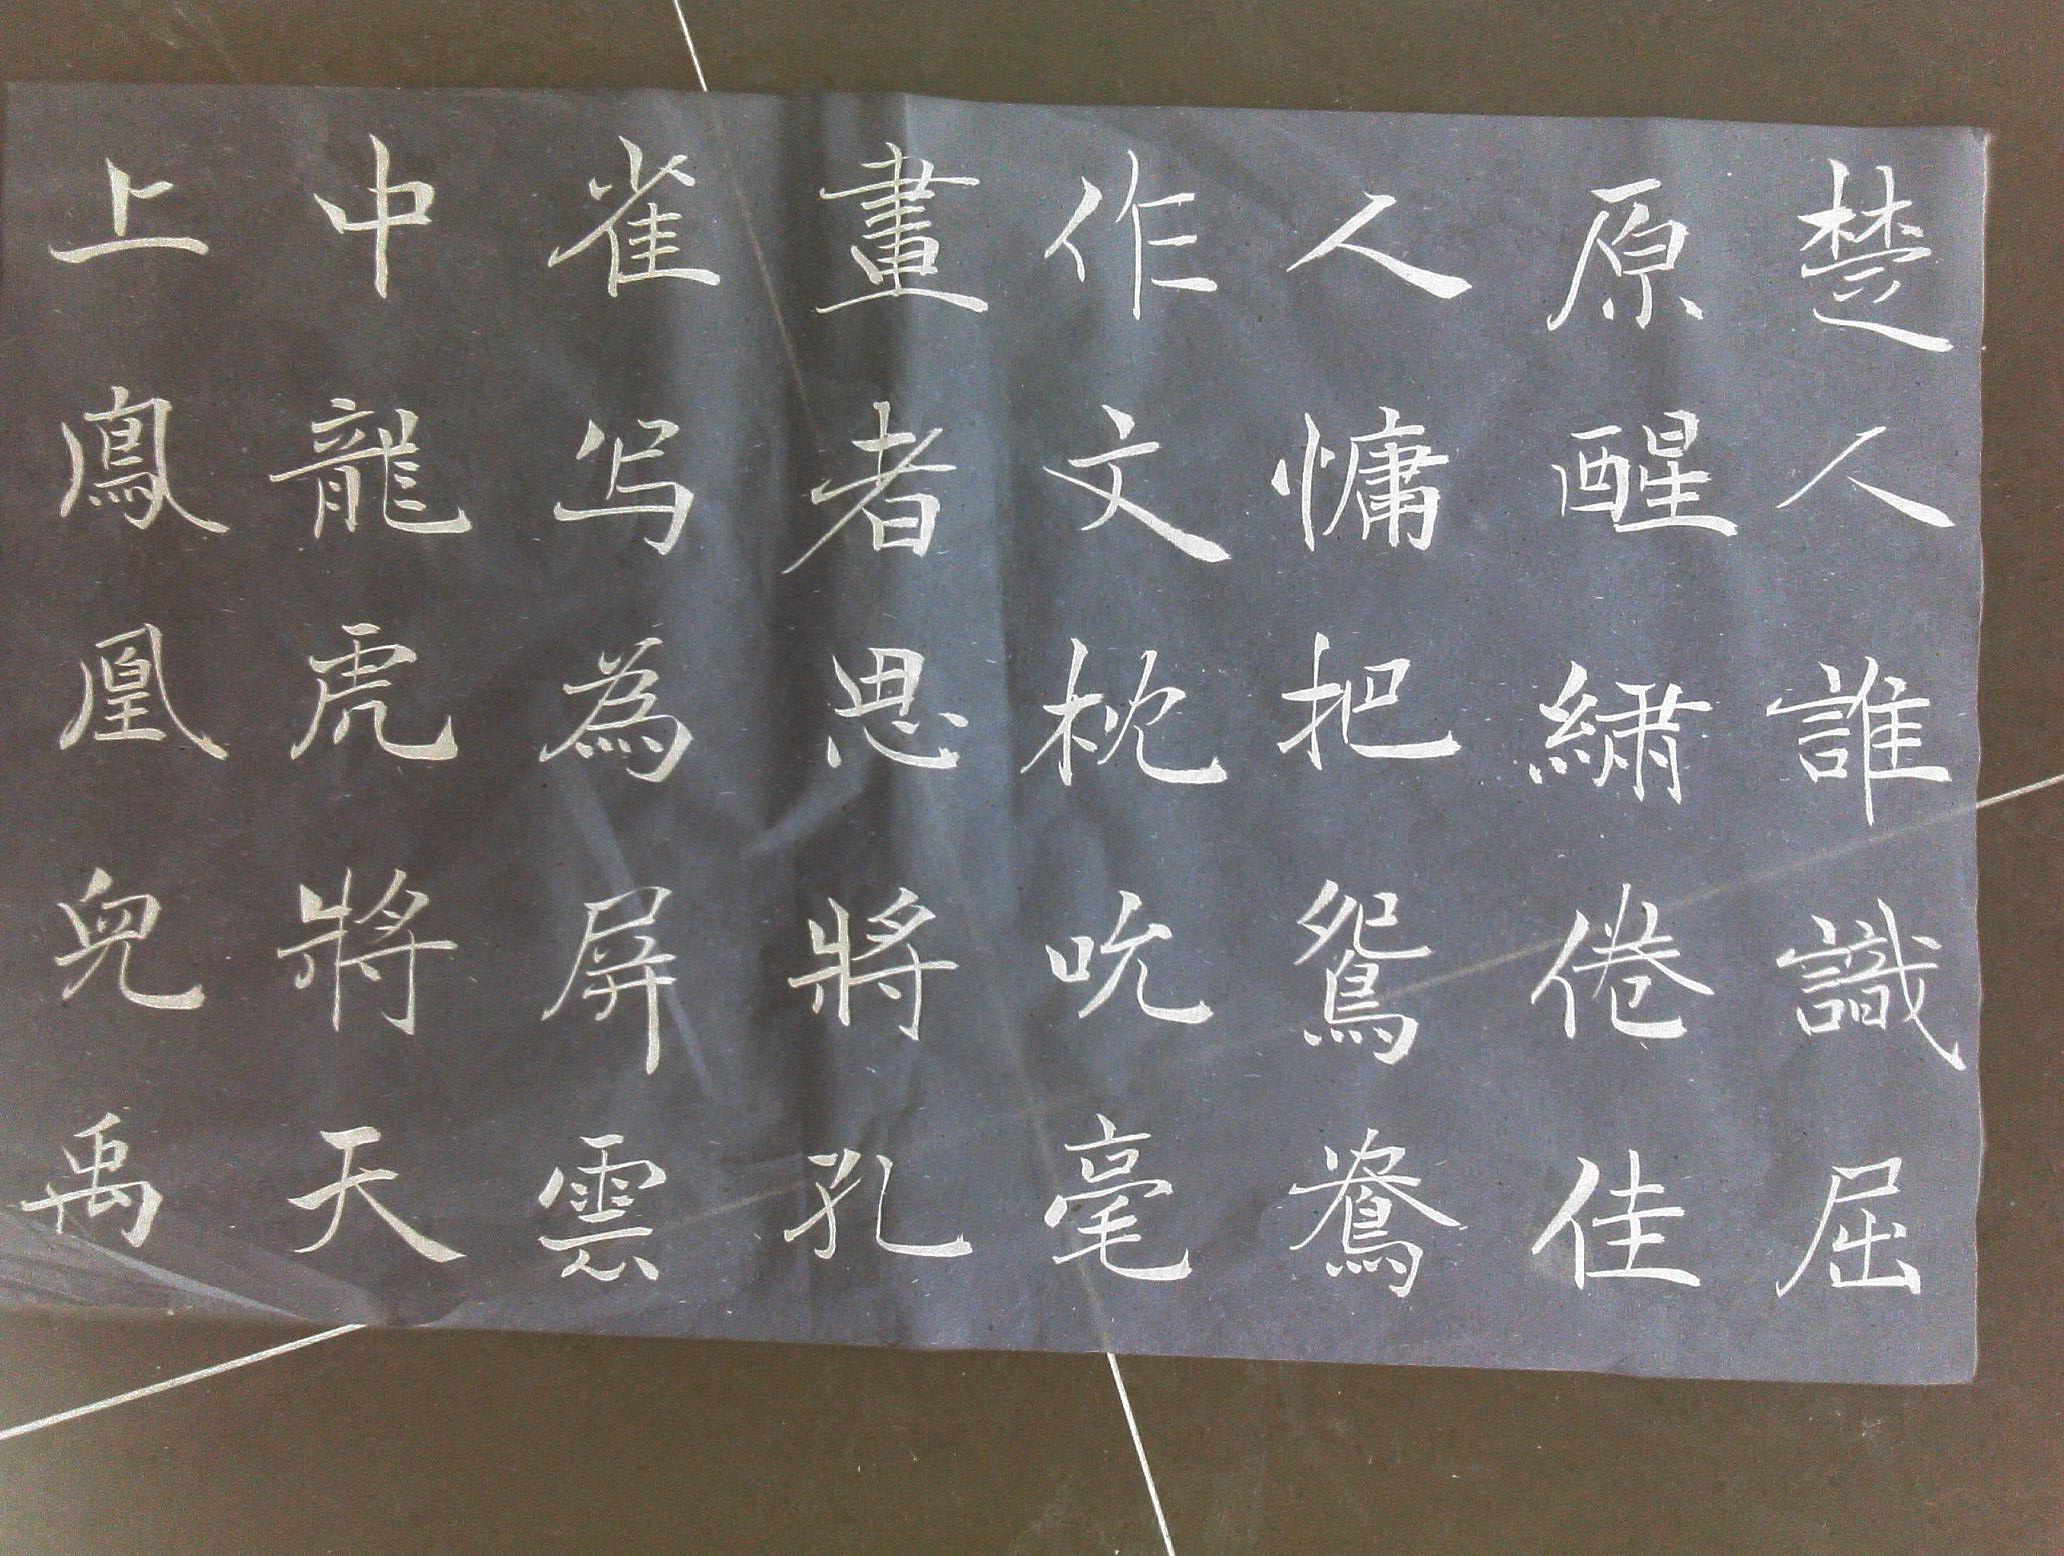 楚人誰識屈
原醒繡倦佳
人慵把鴛鴦
作文枕吮毫
畫者思將孔
雀写為屏雲
中龍虎將天
上鳳凰兒禹